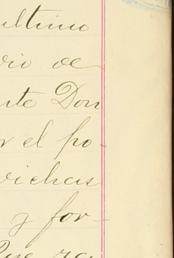 ultimo
rio de
nte Don
r el po-
vichas
y for-